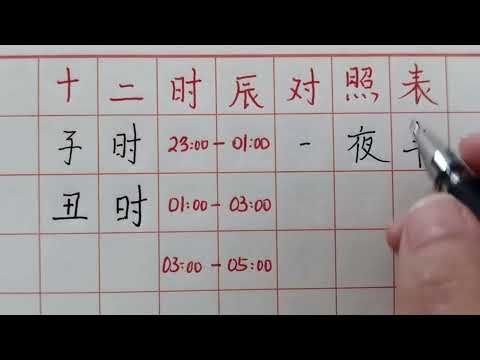 十二时辰对照表
子时 23:00-01:00 - 夜
丑时 01:00-03:00
03:00-05:00